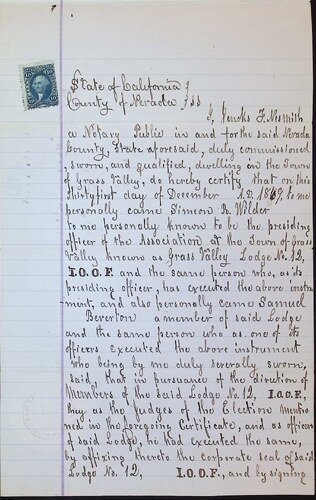 State of California }
County of Nevada } SS
I, Jencks F. Nesmith
a Notary Public in and for the said Nevada
County, State aforesaid, duly commissioned
, sworn, and qualified, dwelling in the Town
of Grass Valley, do hereby certify that on this
Thirty first day of December A.D. 1869, to me
personally came Simeon R. Wilder
to me personally known to be the presiding
officer of the Association at the Town of Grass
Valley known as Grass Valley Lodge No. 12,
I.O.O.F. and the same person who, as its
presiding officer, has executed the above instru-
-ment, and also personally came Samuel
Beverton a member of said Lodge
and the same person who as one of its
officers executed the above instrument
who being by me duly severally sworn,
said, that in pursuance of the direction of
Members of the said Lodge No. 12, I.O.O.F.,
they as the Judges of the Election mentio
ned in the foregoing Certificate, and as officers
of said Lodge, he had executed the same,
by affixing thereto the corporate seal of said
Lodge No. 12, I.O.O.F., and by signing